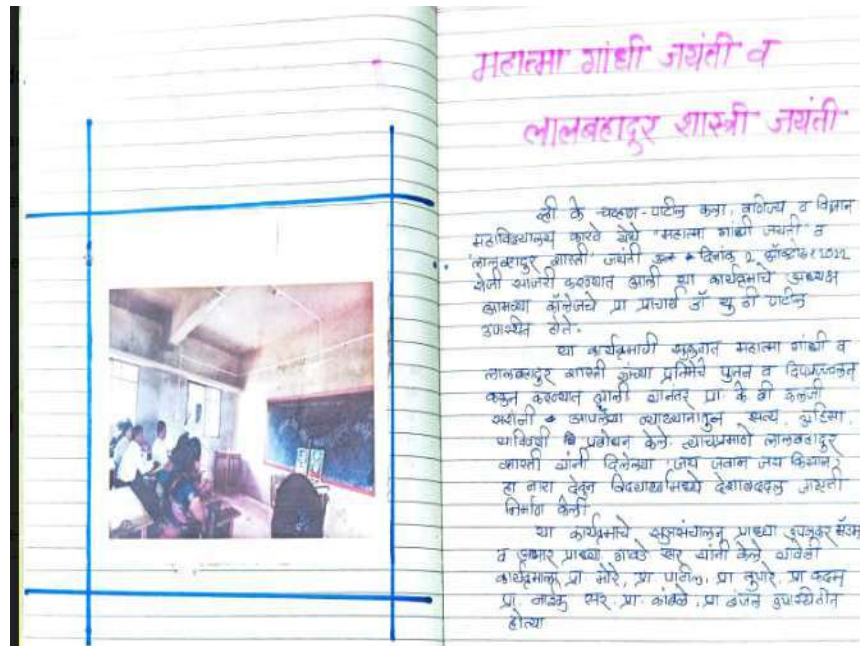 महात्मा गांधी जयंती व
लालबहादूर शास्त्री जयंती
व्ही के चव्हाण-पाटील कला, वाणिज्य व विज्ञान
महाविद्यालय कारवे येथे "महात्मा गांधी जयंती" व
'लालबहादूर शास्त्री' जयंती दिनांक 2 ऑक्टोबर 2022
रोजी साजरी करण्यात आली या कार्यक्रमाचे अध्यक्ष
आमच्या कॉलेजचे प्रा प्राचार्य डॉ यु डी पाटील
उपस्थित होते.
या कार्यक्रमाची सुरुवात महात्मा गांधी व
लालबहादूर शास्त्री यांच्या प्रतिमेचे पुजन व दिपप्रज्वलन
करून करण्यात आली यानंतर प्रा. के बी
सरांनी आपल्या व्याख्यानातून सत्य, अहिंसा,
याविषयी प्रबोधन केले. त्याचप्रमाणे लालबहादूर
शास्त्री यांनी दिलेल्या 'जय जवान जय किसान'
हा नारा देवून विद्यार्थ्यांमध्ये देशाबद्दल जागृती
निर्माण केली
या कार्यक्रमाचे सुत्रसंचालन प्राध्या मॅडम
व आभार प्राध्या गावडे सर यांनी केले यावेळी
कार्यक्रमाला प्रा मोरे, प्रा पाटील, प्रा तुपारे, प्रा कदम
प्रा. नाईक सर, प्रा. कांबळे, प्रा उपस्थित
होत्या